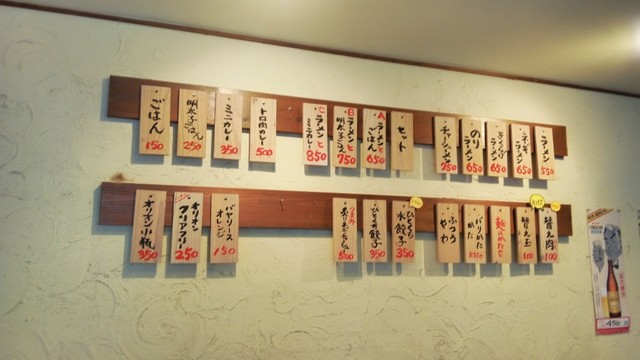 ラーメン
550
ネギ
ラーメン
650
ラーメン
650
のり
ラーメン
650
750
セット
A
ラーメンと
ごはん
650
B
ラーメンと
明太子ごはん
750
C
ラーメンと
ミニカレー
850
トロ肉カレー
500
ミニカレー
350
明太子ごはん
250
ごはん
150
替え肉
100
替え玉
100
バリかた
かた
ふつう
やわ
ひとくち
水餃子
350
ひとくち餃子
350
500
バヤリース
オレンジ
150
キリン
フリー
250
オリオン小瓶
350
450